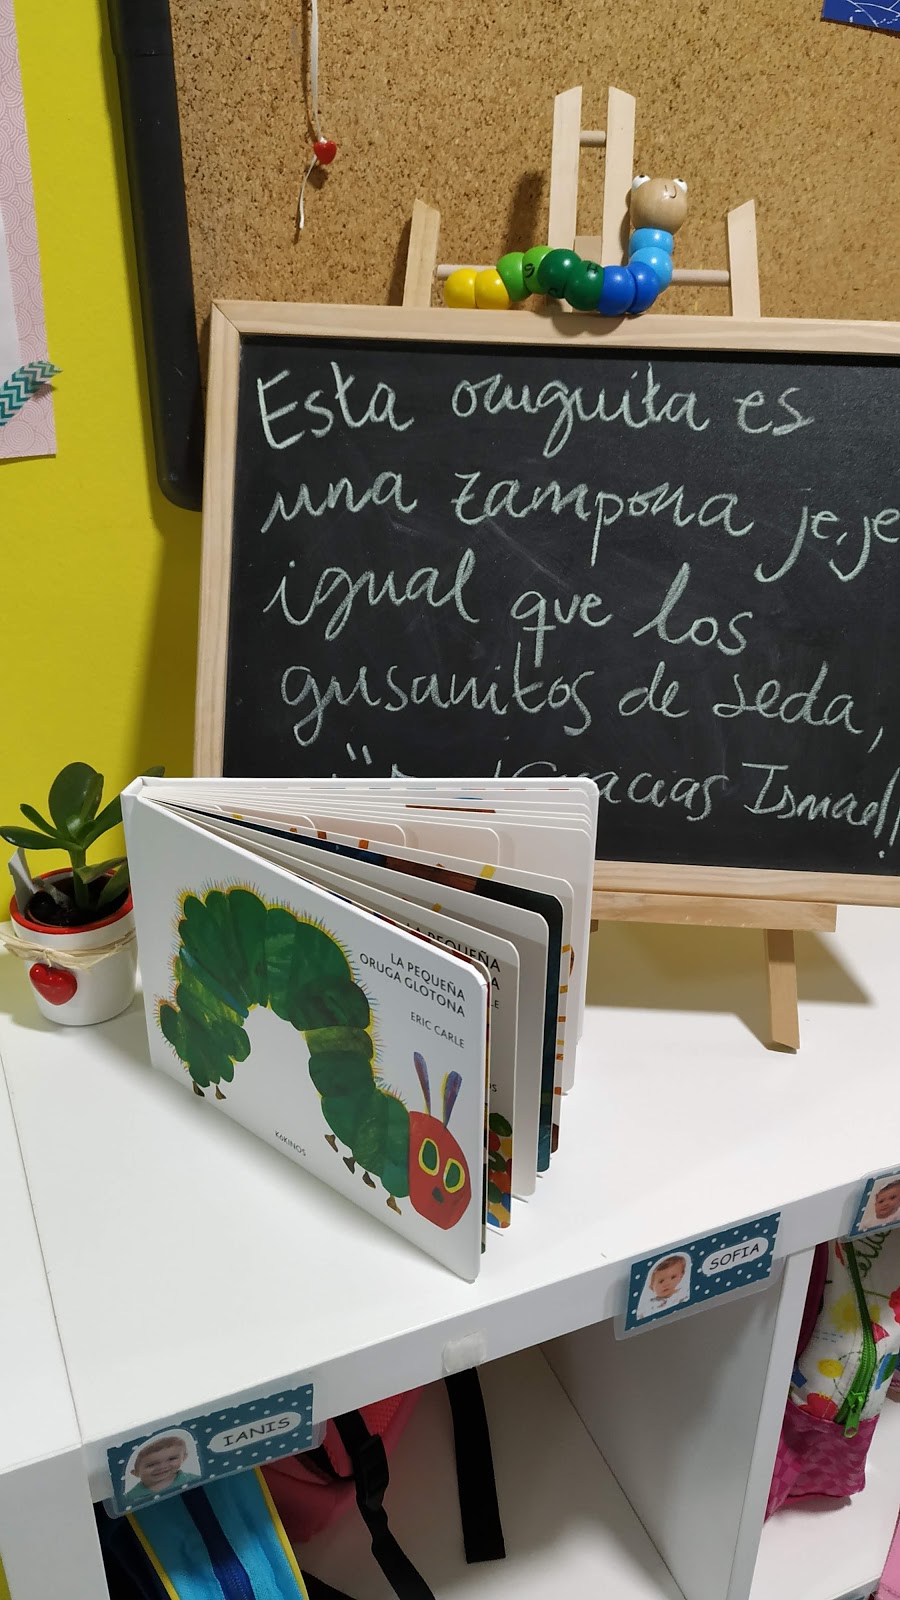 Esta oruguita es
una zampona je, je
igual que los
gusanitos de seda,
Gracias Ismael!
LA PEQUEÑA
ORUGA GLOTONA
ERIC CARLE
KÓKINOS
LA PEQUEÑA
SOFIA
IANIS